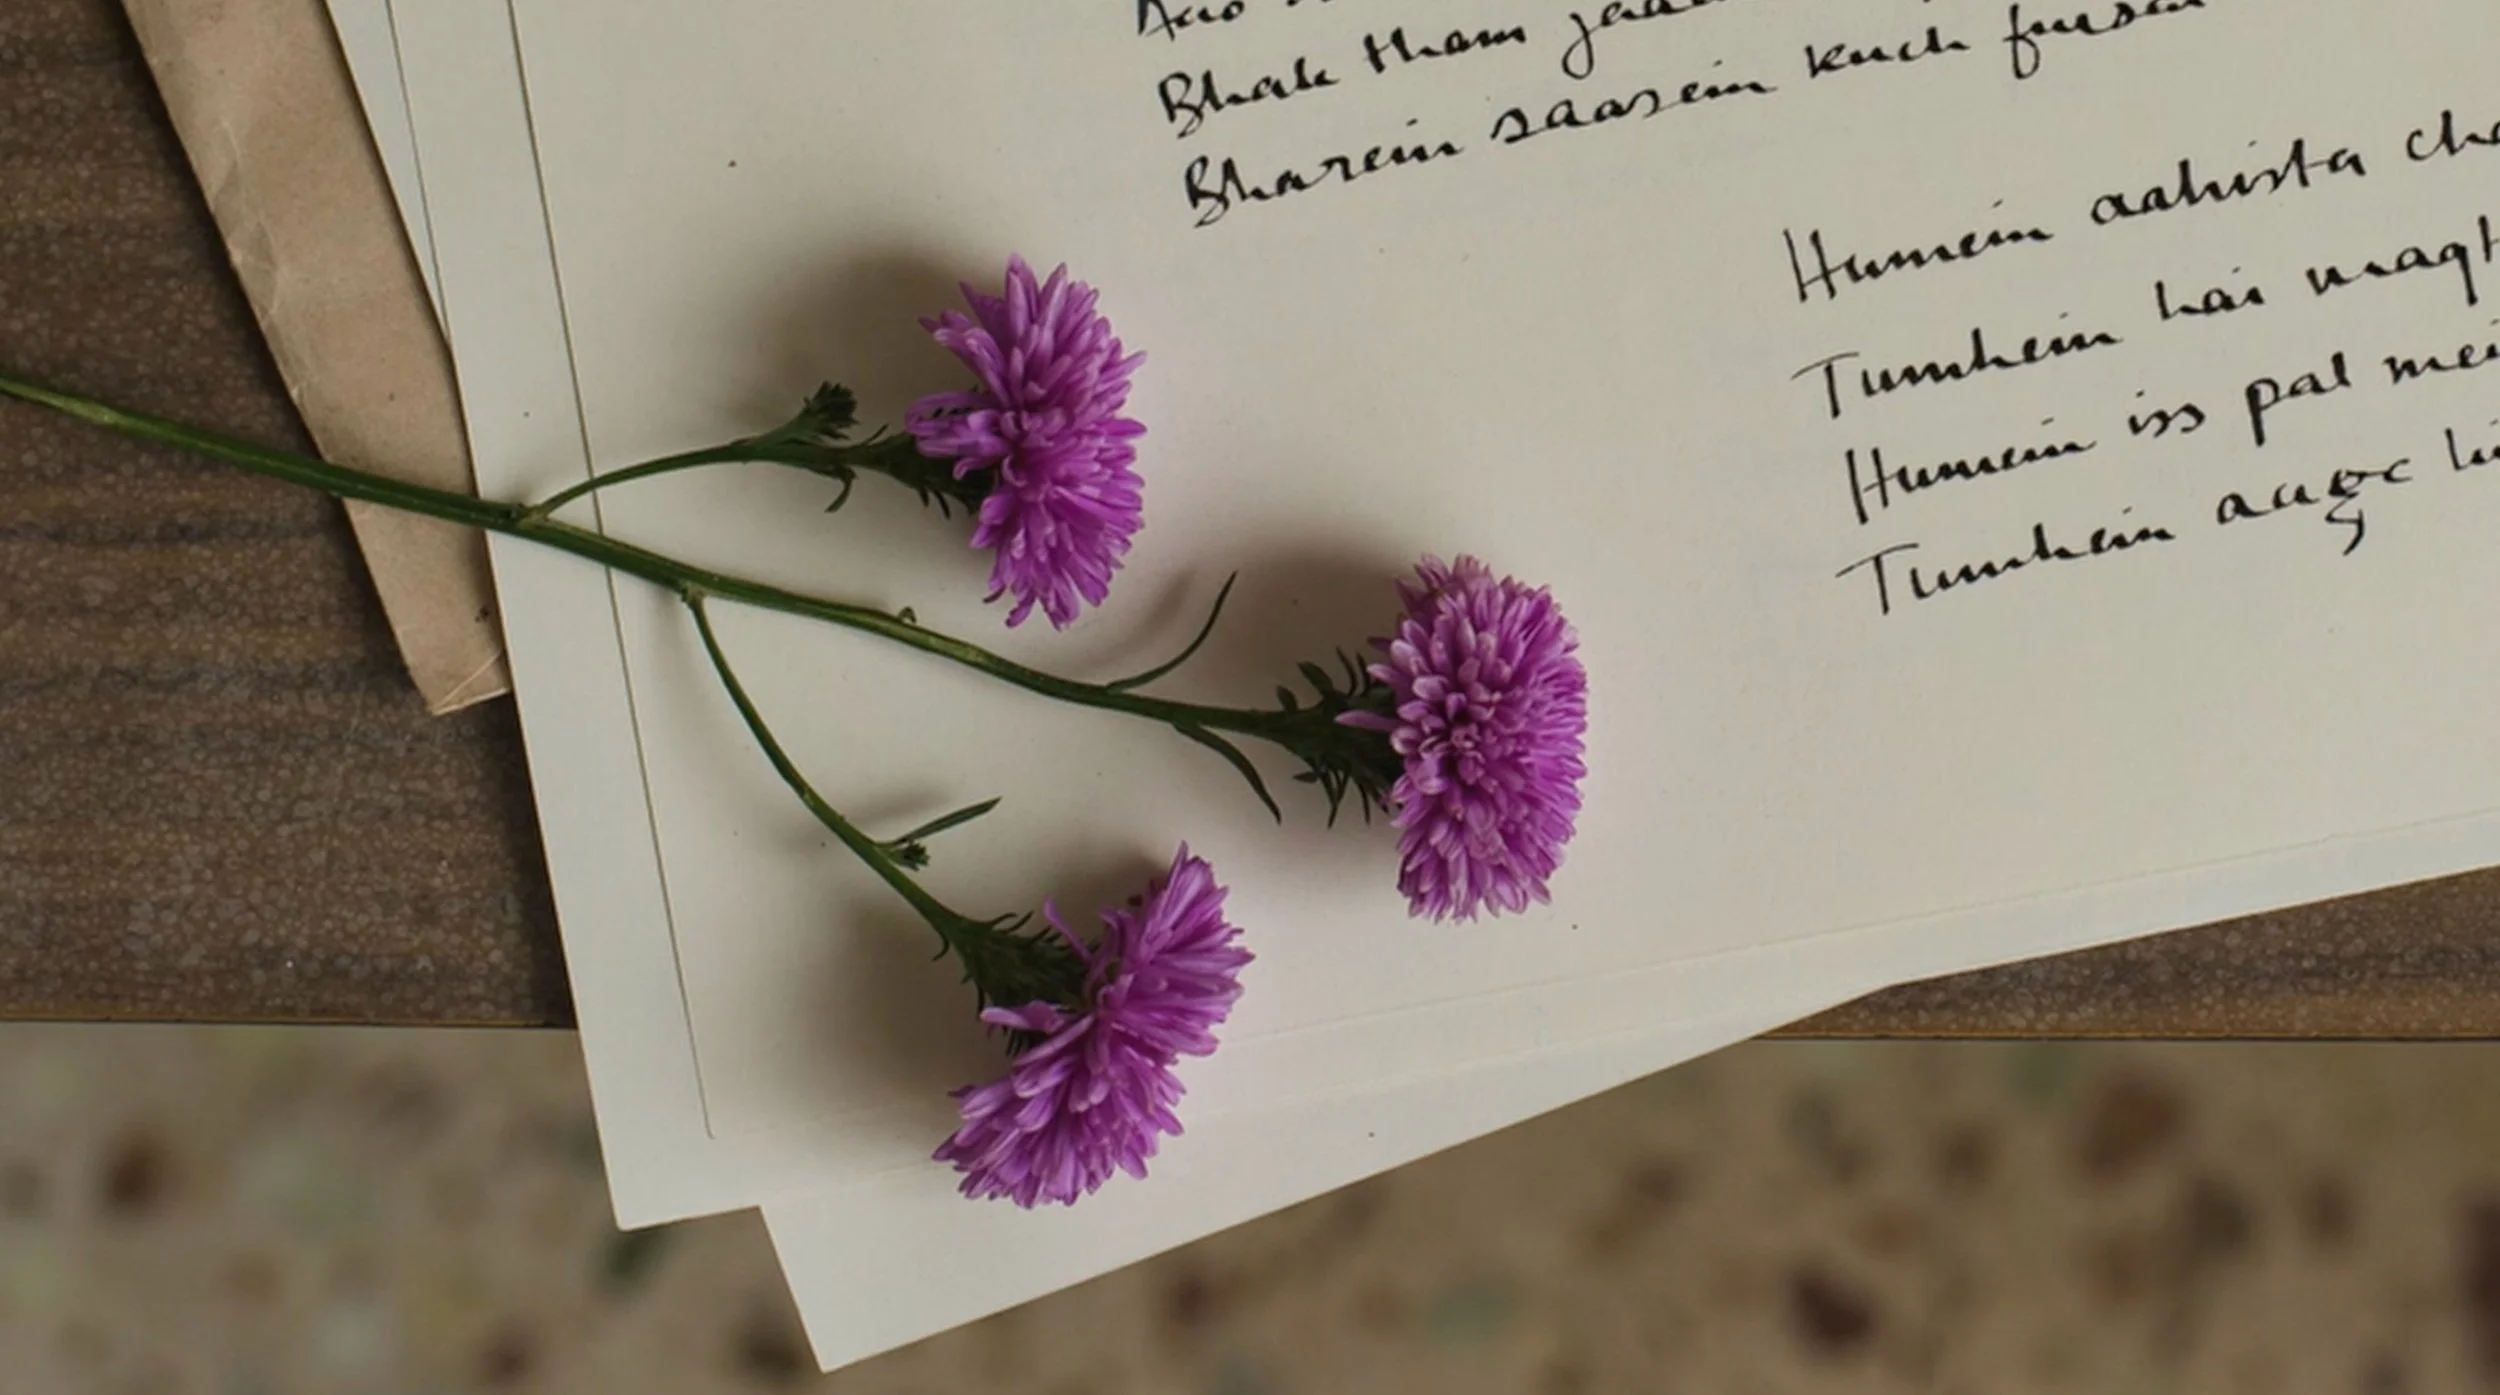 Aao
Bhale tham jaa
Bharein saasein kuch fursa
Humein aahista cha
Tumhein hai maqh
Humein iss pal mei
Tumhein aage